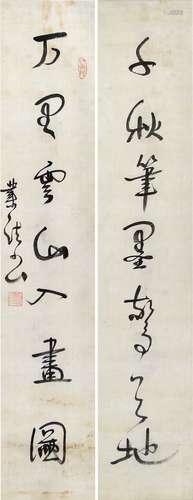 千秋筆墨驚天地
万里雲山入畫圖